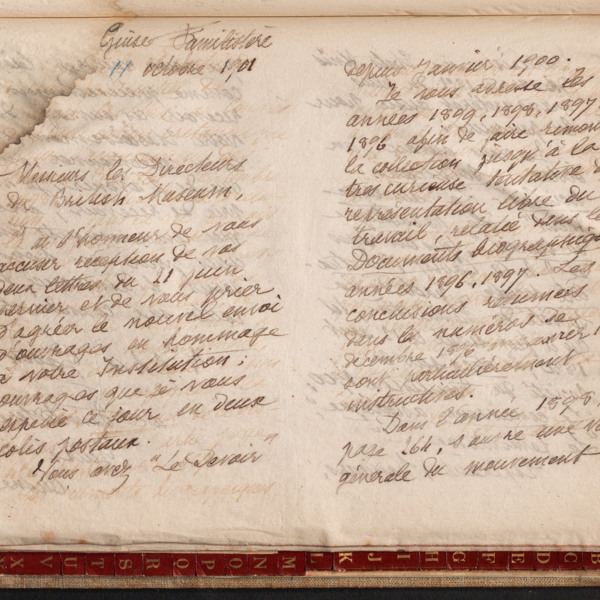 Guise Familistère
11 octobre 1901
Messieurs les Directeurs
du British Museum,
J'ai l'honneur de vous
accuser réception de vos
deux lettres du 21 juin
dernier et de vous prier
d'agréer ce nouvel envoi
d'ouvrages en hommage
à votre Institution;
ouvrages que je vous
expédie ce jour en deux
colis postaux.
Vous avez "Le Devoir
depuis Janvier 1900.
Je vous adresse les
années 1899, 1898, 1897,
1896 afin de faire remon
la collection jusqu'à la
très curieuse tentative d
représentation libre du
travail, relatée dans le
Documents biographiqu
années 1896, 1897. Les
conclusions résumées
dans le numéros de
décembre 1896
sont particulièrement
instructives.
Dans l'année 1898,
page 264, s'ouvre une
générale du mouvement
M L K J I H G F E D C B
X V U T S R Q P O N